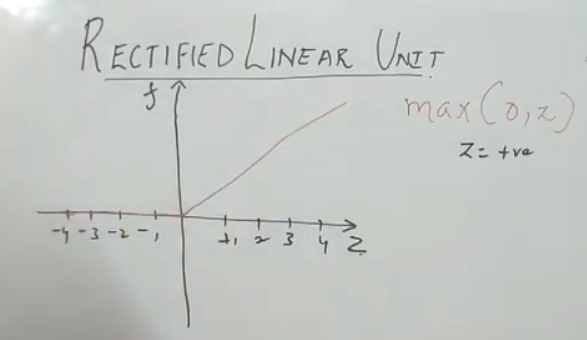 RECTIFIED LINEAR UNIT
f
max(0,z)
z = +ve
-4 -3 -2 -1 +1 2 3 4 Z